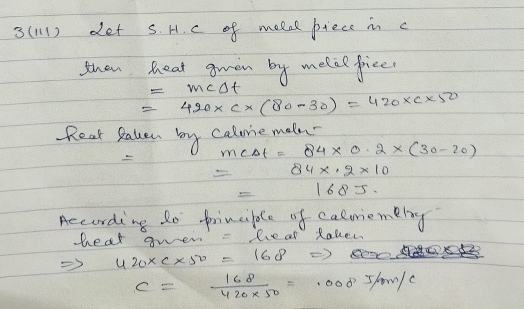 3(111) Let S.H.C of metal piece is c
then heat given by metal piece
= mcΔt
= 420 x c x (80-30) = 420xcx50
Heat taken by calorimeter
= mcΔt = 84 x 0.2 x (30-20)
= 84 x .2 x 10
= 168 J.
According to principle of calorimetry
heat given = heat taken
⇒ 420xcx50 = 168 ⇒
c = 168 / 420 x 50 = .008 J/gm/c